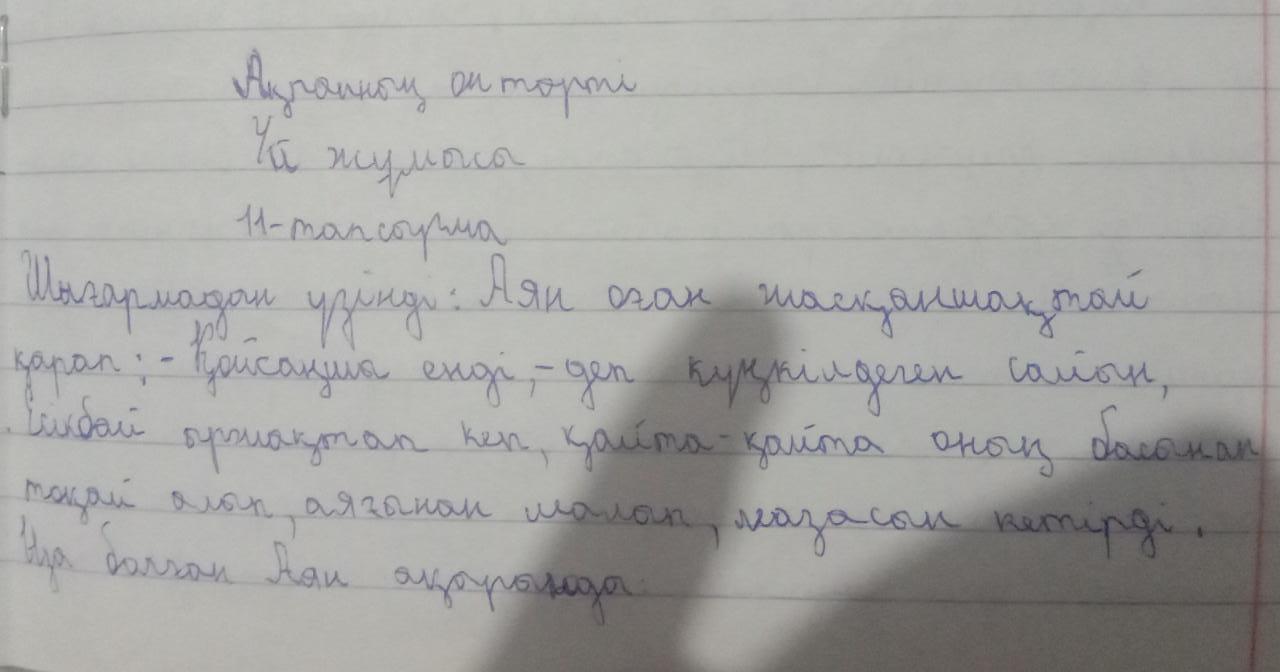 Ақпанның он төрті
Үй жұмысы
11-тапсырма
Шығармадан үзінді: Аян оған жасқаншақтай
қарап: - Қойсаңшы енді, - деп күңкілдеген сайын,
ойнақтап кеп, қайта-қайта оның басынан
тақай алып, аяғынан шалып, мазасын кетірді.
Ыза болған Аян ақырында